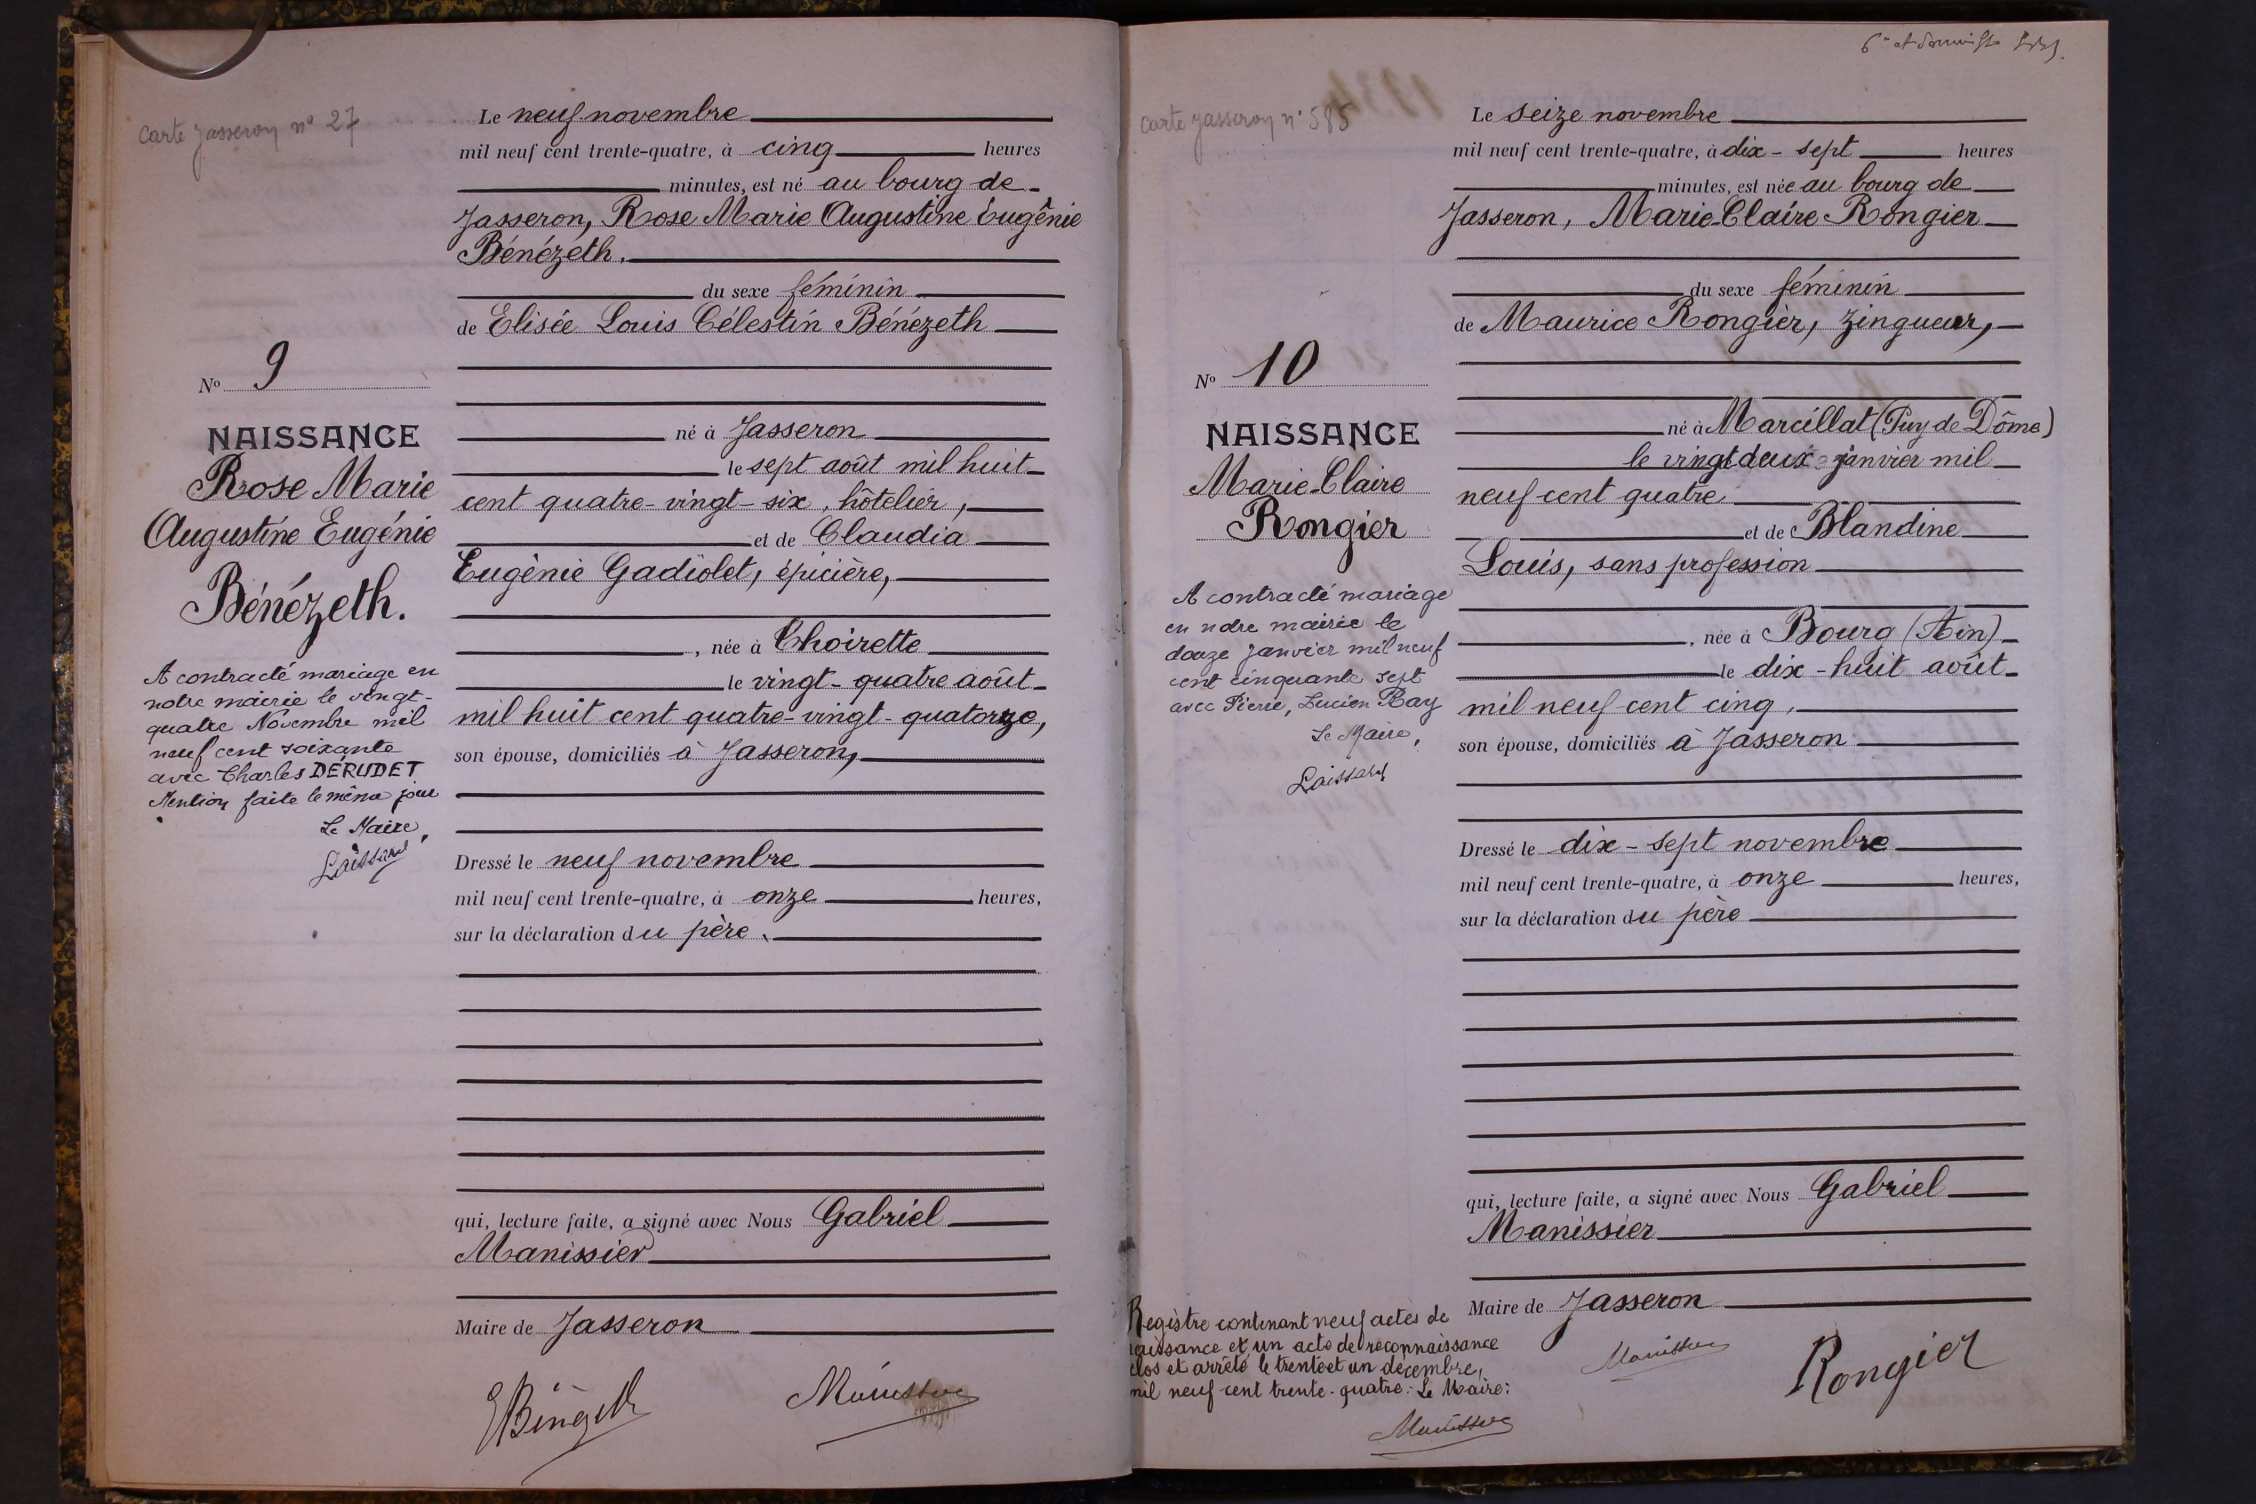 carte Jasseron n° 27
Le neuf novembre
mil neuf cent trente-quatre, à cinq heures
minutes, est né au bourg de
Jasseron, Rose Marie Augustine Eugénie
Bénézeth.
du sexe féminin
de Elisée Louis Célestin Bénézeth
né à Jasseron
le sept août mil huit
cent quatre-vingt-six, hôtelier,
et de Claudia
Eugénie Gadiolet, épicière,
, née à Choirette
le vingt-quatre août
mil huit cent quatre-vingt-quatorze,
son épouse, domiciliés à Jasseron,
Dressé le neuf novembre
mil neuf cent trente-quatre, à onze heures,
sur la déclaration du père.
qui, lecture faite, a signé avec Nous Gabriel
Manissier
Maire de Jasseron
N° 9
NAISSANCE
Rose Marie
Augustine Eugénie
Bénézeth.
A contracté mariage en
notre mairie le vingt-
quatre Novembre mil
neuf cent soixante
avec Charles DÉRUDET
Mention faite le même jour
Le Maire,
EBénézeth
Manissier
6e et dernier
carte Jasseron n° 585
Le seize novembre
mil neuf cent trente-quatre, à dix-sept heures
minutes, est née au bourg de
Jasseron, Marie-Claire Rongier
du sexe féminin
de Maurice Rongier, zingueur,
né à Marcillat (Puy de Dôme)
le vingt deux janvier mil
neuf cent quatre
et de Blandine
Louis, sans profession
, née à Bourg (Ain)
le dix-huit août
mil neuf cent cinq,
son épouse, domiciliés à Jasseron
Dressé le dix-sept novembre
mil neuf cent trente-quatre, à onze heures,
sur la déclaration du père
qui, lecture faite, a signé avec Nous Gabriel
Manissier
Maire de Jasseron
N° 10
NAISSANCE
Marie-Claire
Rongier
A contracté mariage
en notre mairie le
douze janvier mil neuf
cent cinquante sept
avec Pierre, Lucien Ray
Le Maire,
Registre contenant neuf actes de
naissance et un acte de reconnaissance
clos et arrêté le trente et un décembre,
mil neuf cent trente-quatre: Le Maire:
Manissier
Manissier
Rongier